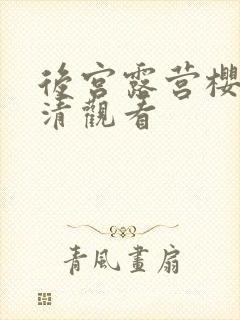 後宮露营櫻
清觀看
青風畫扇